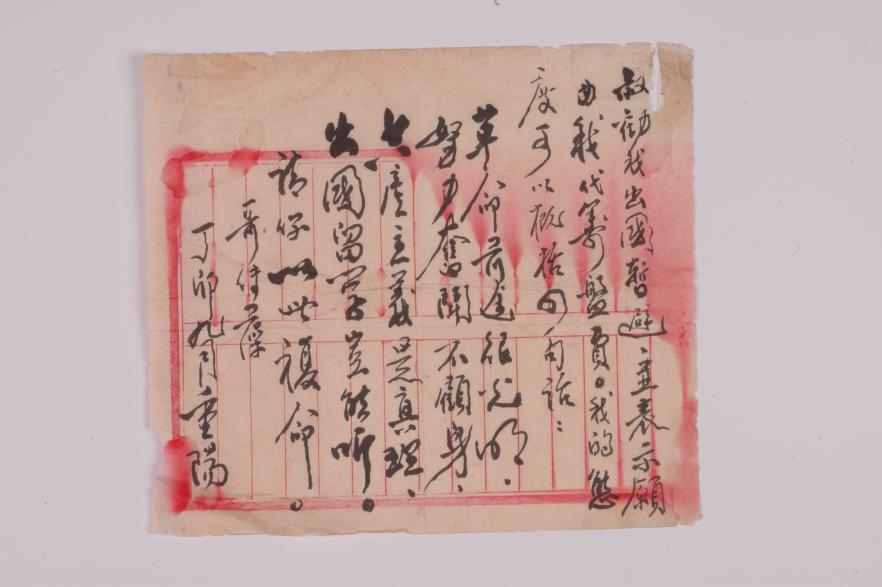 叔劝我出國暫避、並表示願
由我代籌盤費。我的態
度可以概括四句話：
革命前途很光明、
努力奮鬪不顧身、
共產主義是真理、
出國留学豈能听。
請你以此複命。
哥付
丁卯九月重陽